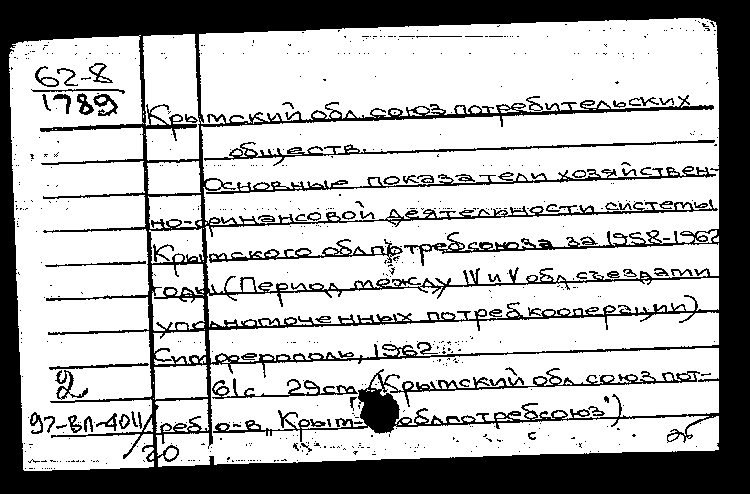 62-8
1789
Крымский обл. союз потребительских
обществ.
Основные показатели хозяйствен-
но-финансовой деятельности системы
Крымского облпотребсоюза за 1958-1962
годы (Период между IV и V обл. съездами
уполномоченных потребкооперации)
Симферополь, 1962
2
61с. 29см. (Крымский обл. союз пот-
92-ВЛ-4011
реб. о-в „Крым-облпотребсоюз")
20